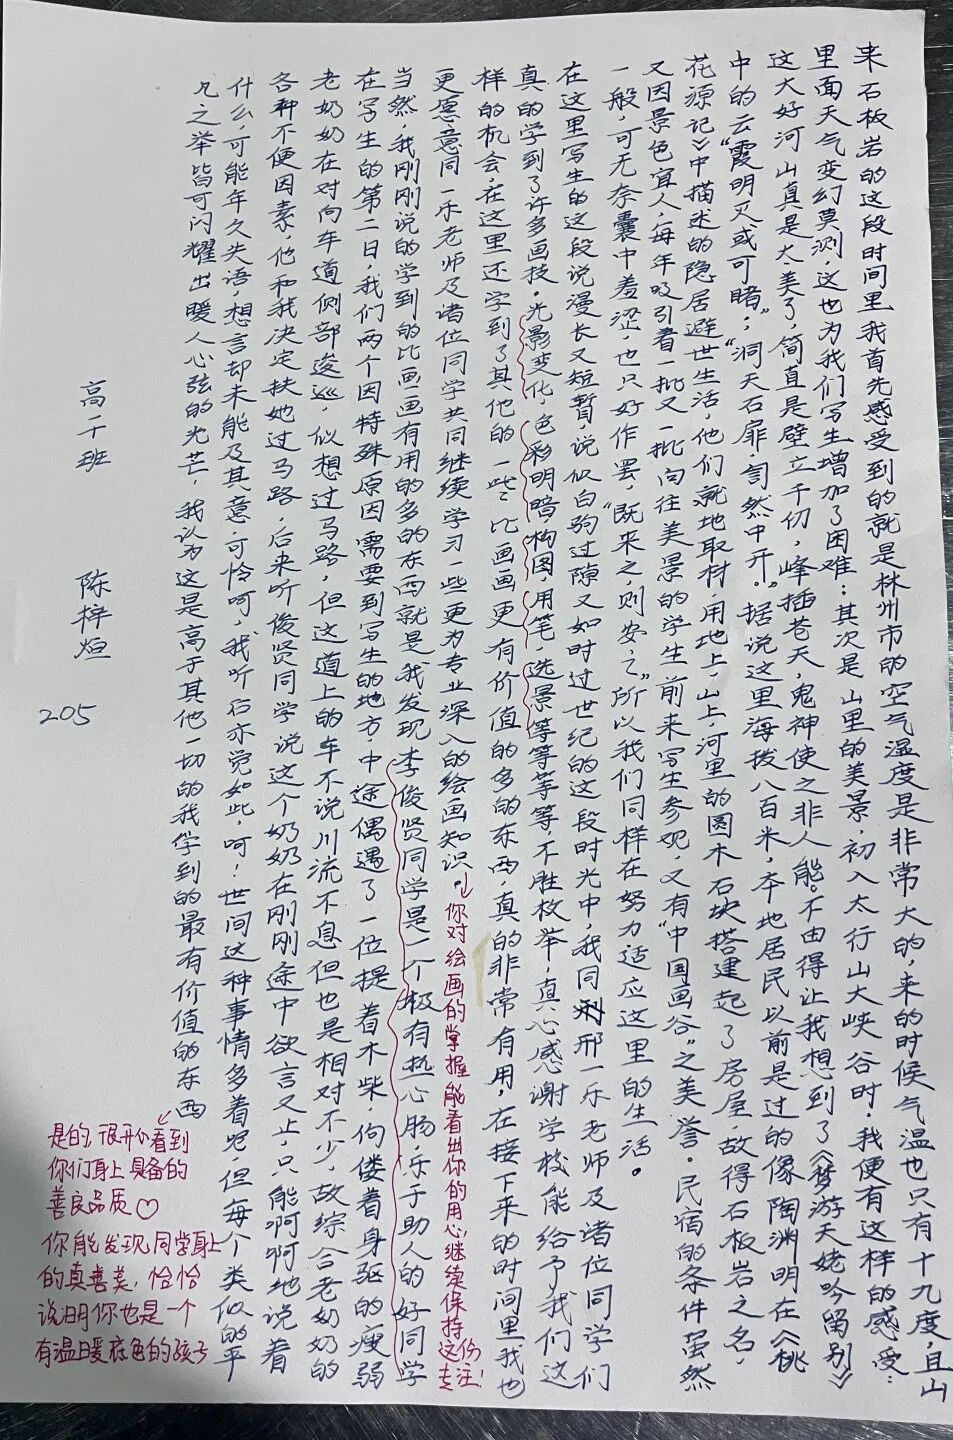 来石板岩的这段时间里我首先感受到的就是林州市的空气温度是非常大的，来的时候气温也只有十九度，且山
里面天气变幻莫测，这也为我们写生增加了困难：其次是山里的美景，初入太行山大峡谷时，我便有这样的感受：
这大好河山真是太美了，简直是壁立千仞，峰插苍天，鬼神使之非人能。不由得让我想到了《梦游天姥吟留别》
中的云“霞明灭或可睹”；“洞天石扉，訇然中开。”据说这里海拔八百米，本地居民以前是过的像陶渊明在《桃
花源记》中描述的隐居避世生活，他们就地取材，用地上，山上，河里的圆木石块搭建起了房屋，故得石板岩之名，
又因景色宜人，每年吸引着一批又一批向往美景的学生前来写生参观，又有“中国画谷”之美誉。民宿的条件虽然
一般，可无奈囊中羞涩，也只好作罢，“既来之，则安之”所以我们同样在努力适应这里的生活。
在这里写生的这段说漫长又短暂，说似白驹过隙又如时过世纪的这段时光中，我同邢一乐老师及诸位同学们
真的学到了许多画技。光影变化，色彩明暗构图，用笔，选景等等等等，不胜枚举，真心感谢学校能给予我们这
样的机会，在这里还学到了其他的一些，比画画更有价值的多的东西，真的非常有用，在接下来的时间里我也
更愿意同一乐老师及诸位同学共同继续学习一些更为专业深入的绘画知识。
→你对绘画的掌握能看出你的用心，继续保持这份专注！
当然，我刚刚说的学到的比画画有用的多的东西就是我发现李俊贤同学是一个极有热心肠，乐于助人的好同学
在写生的第二日，我们两个因特殊原因需要到写生的地方，中途偶遇了一位提着木柴，佝偻着身躯的瘦弱
老奶奶在对向车道侧部逡巡，似想过马路，但这道上的车不说川流不息但也是相对不少，故综合老奶奶的
各种不便因素，他和我决定扶她过马路，后来听俊贤同学说这个奶奶在刚刚途中欲言又止，只能啊啊地说着
什么，可能年久失语，想言却未能及其意，可怜呵，我听后亦觉如此，呵！世间这种事情多着呢，但每个类似的平
凡之举皆可闪耀出暖人心弦的光芒，我认为这是高于其他一切的我学到的最有价值的东西
是的，很开心看到
你们身上具备的
善良品质♡
你能发现同学身上
的真善美，恰恰
说明你也是一个
有温暖底色的孩子
高十班 陈梓烜 205